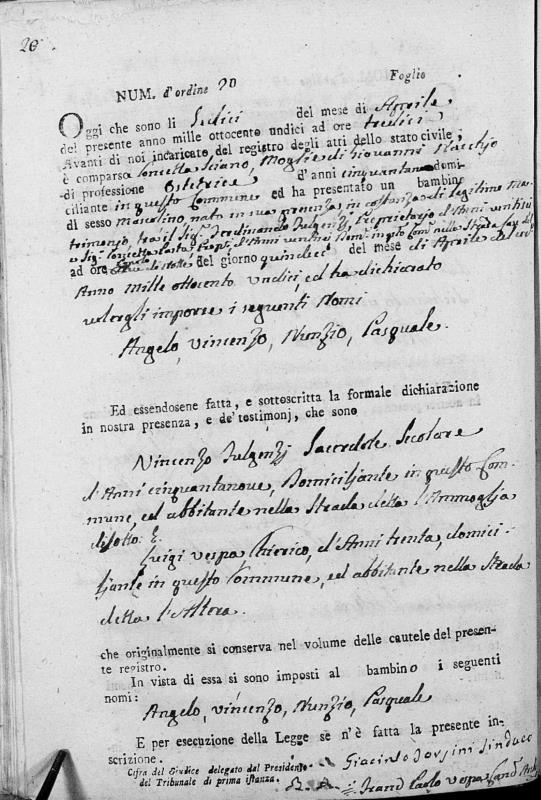 20
NUM. d'ordine 20 Foglio
Oggi che sono li Sedici del mese di Aprile
del presente anno mille ottocento undici ad ore tredici
Avanti di noi incaricato del registro degli atti dello stato civile,
è comparsa Concetta Sciano, Moglie di Giovanni
di professione Ostetrica d'anni cinquanta domi-
ciliante in questo Commune ed ha presentato un bambin
di sesso mascolino, nato in sua presenza, in costanza di legitimo ma-
trimonio, tra il Sig.r Ferdinando Fulgenzj, Proprietario d'Anni ventisei
e Sig.a Concetta d'Anni ventisei Dom. in q.to Com. nella Strada
ad ore di notte, del giorno quindeci del mese di Aprile del
Anno Mille ottocento undici, ed ha dichiarato
volergli imporre i seguenti Nomi
Angelo, Vincenzo, Nunzio, Pasquale.
Ed essendosene fatta, e sottoscritta la formale dichiarazione
in nostra presenza, e de' testimonj, che sono
Vincenzo Fulgenzj Sacerdote Secolare
d'Anni cinquantanove, Domiciljante in questo Com-
mune, ed abbitante nella Strada detta l'Ammoglja
disotto: E.
Luigi Vespa Chierico, d'Anni trenta, domici-
ljante in questo Commune, ed abbitante nella Strada
detta l'Altera.
che originalmente si conserva nel volume delle cautele del presen-
te registro.
In vista di essa si sono imposti al bambino i seguenti
nomi:
Angelo, Vincenzo, Nunzio, Pasquale
E per esecuzione della Legge se n'è fatta la presente in-
scrizione. Giacinto Dorsini Sindaco
Cifra del Giudice delegato dal Presidente
del Tribunale di prima istanza. Paolo Vespa